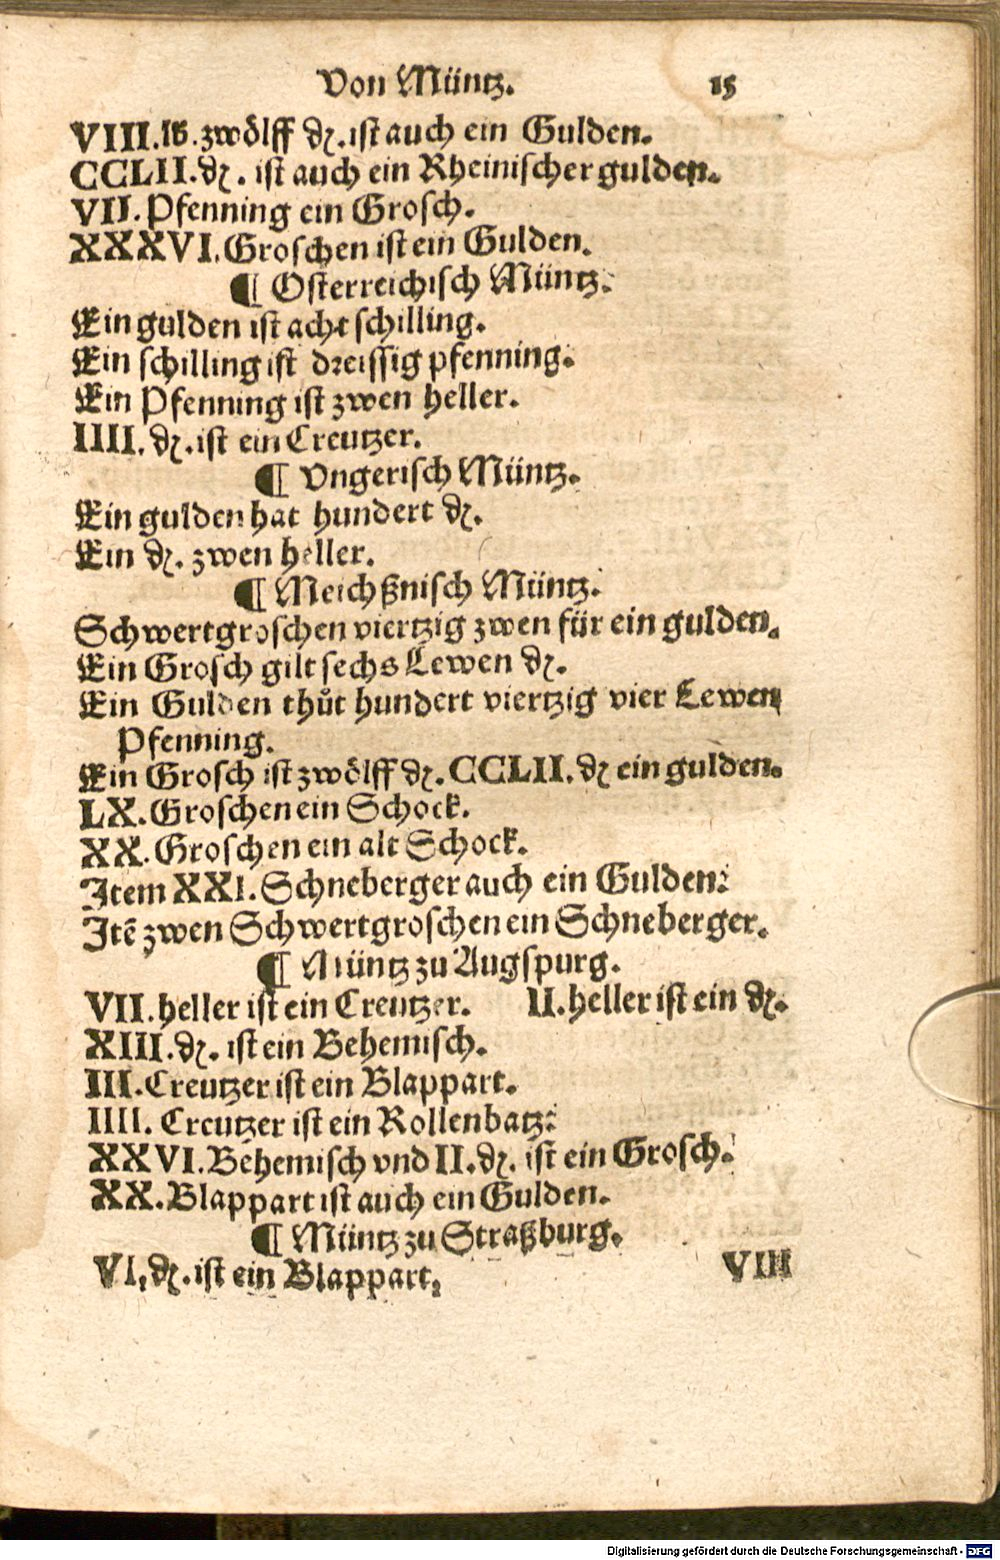 Von Müntz. 15
VIII.lb.zwölff ₰.ist auch ein Gulden.
CCLII.₰. ist auch ein Rheinischer gulden.
VII. Pfenning ein Grosch.
XXXVI.Groschen ist ein Gulden.
¶ Osterreichisch Müntz.
Ein gulden ist acht schilling.
Ein schilling ist dreissig pfenning.
Ein Pfenning ist zwen heller.
IIII. ₰.ist ein Creutzer.
¶ Vngerisch Müntz.
Ein gulden hat hundert ₰.
Ein ₰. zwen heller.
¶ Meichßnisch Müntz.
Schwertgroschen viertzig zwen für ein gulden.
Ein Grosch gilt sechs Lewen ₰.
Ein Gulden thůt hundert viertzig vier Lewen
Pfenning.
Ein Grosch ist zwölff ₰. CCLII. ₰ ein gulden.
LX. Groschen ein Schock.
XX. Groschen ein alt Schock.
Item XXI. Schneberger auch ein Gulden.
Itē zwen Schwertgroschen ein Schneberger.
¶ Müntz zu Augspurg.
VII. heller ist ein Creutzer. II. heller ist ein ₰.
XIII.₰. ist ein Behemisch.
III. Creutzer ist ein Blappart.
IIII. Creutzer ist ein Rollenbatz.
XXVI. Behemisch vnd II.₰. ist ein Grosch.
XX. Blappart ist auch ein Gulden.
¶ Müntz zu Straßburg.
VI.₰.ist ein Blappart. VIII
Digitalisierung gefördert durch die Deutsche Forschungsgemeinschaft - DFG